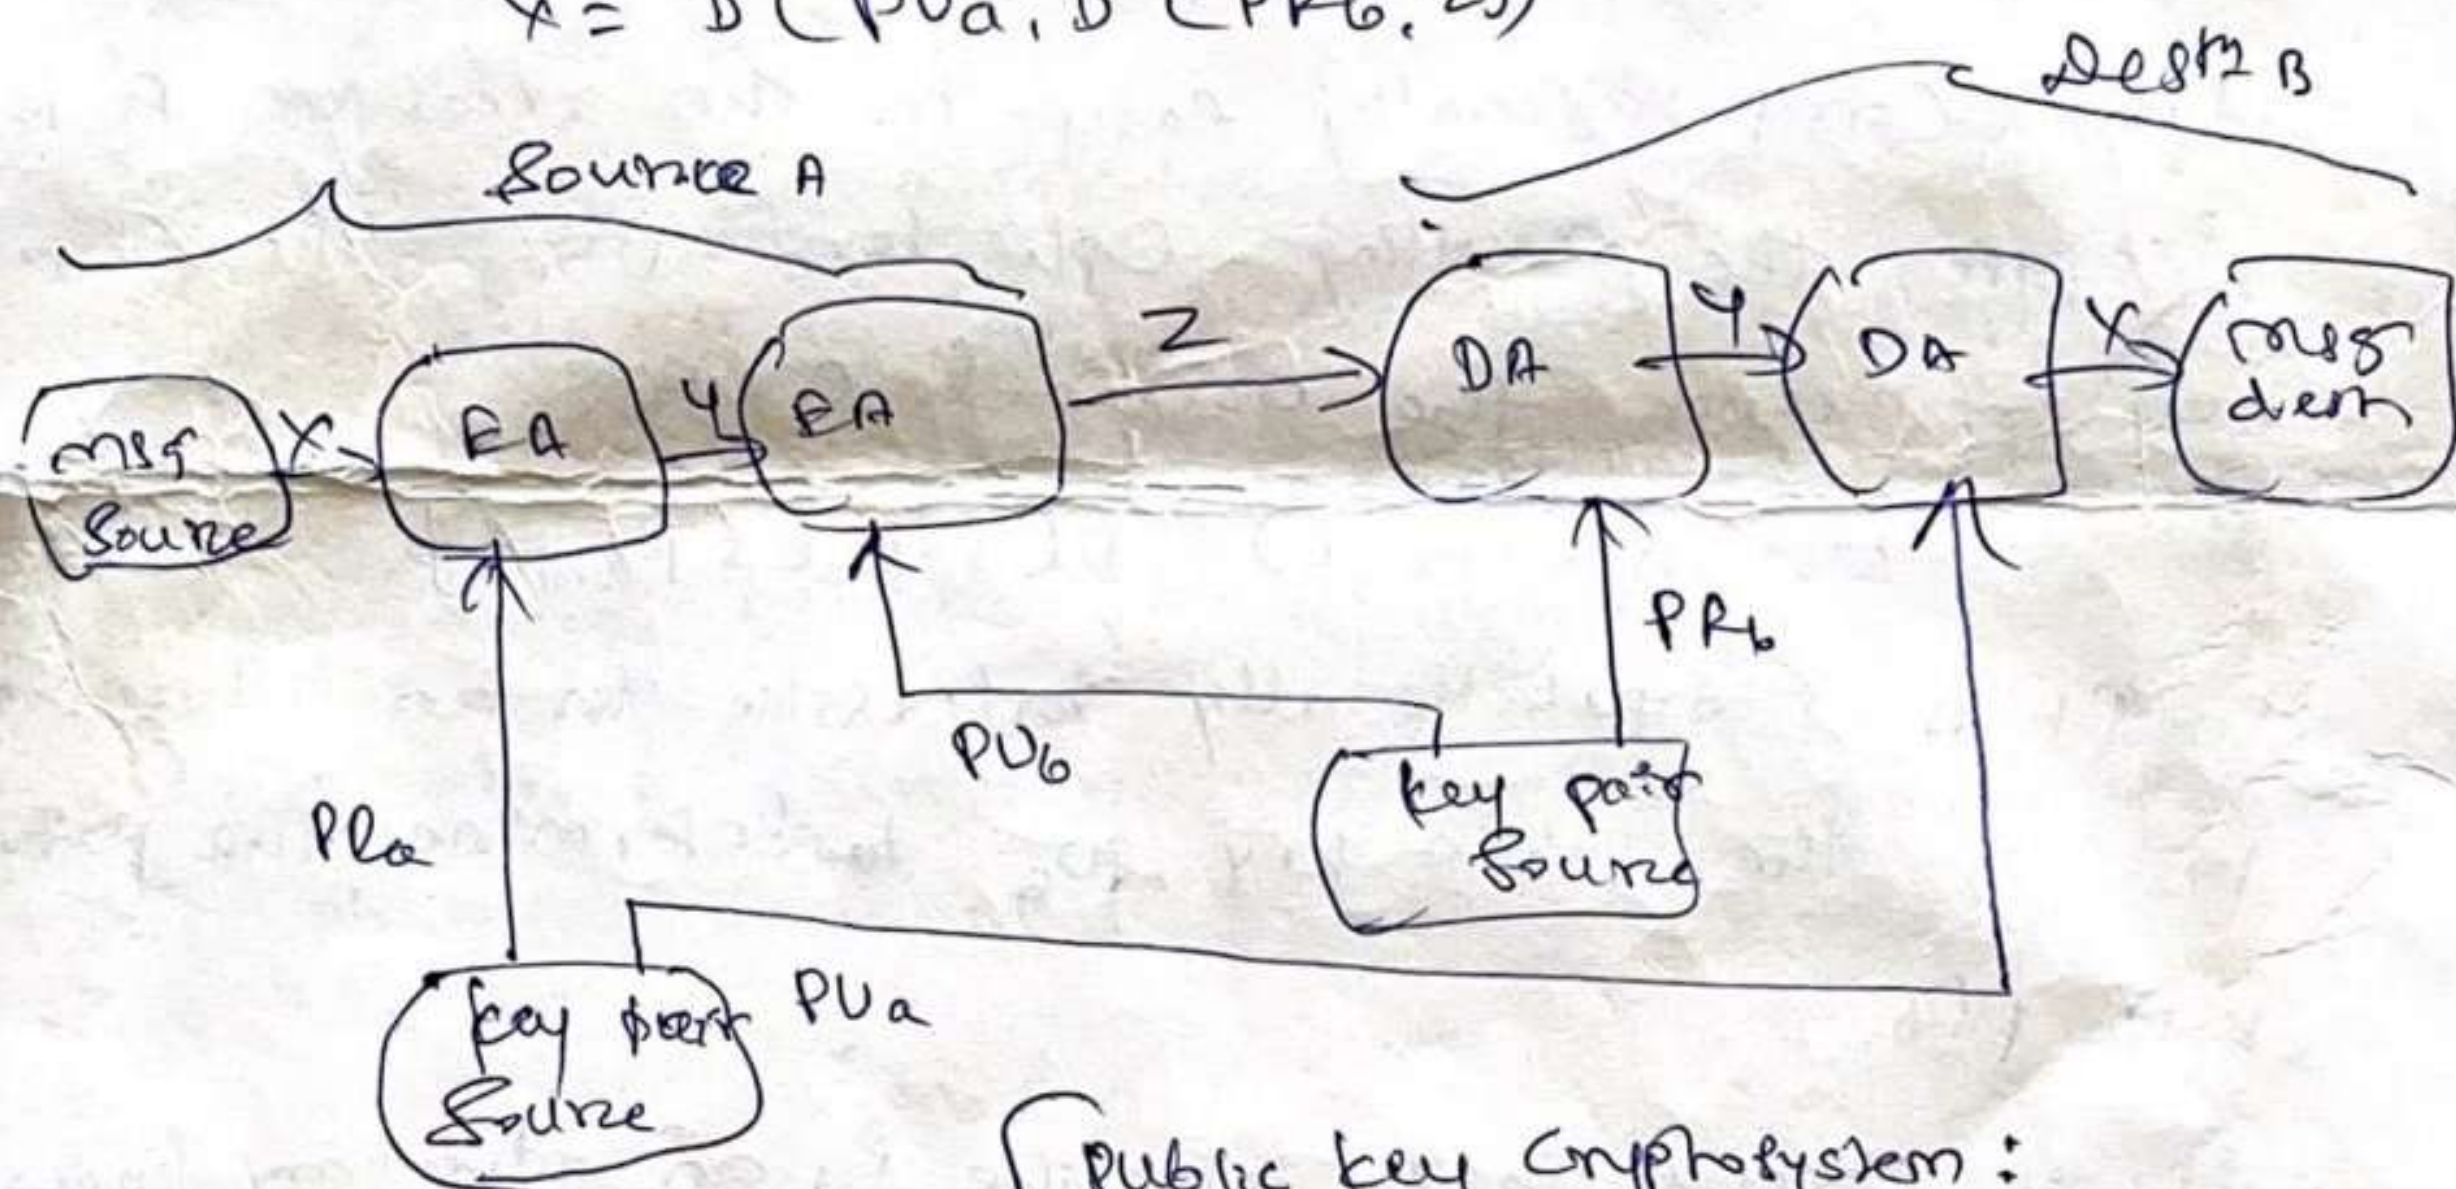 X = D (PUa, D (PRb, Z))
Destn B
Source A
msg
Source
X
EA
Y
EA
Z
DA
Y
DA
X
msg
destn
PRb
PUb
key pair
Source
PRa
key pair
Source
PUa
public key cryptosystem :